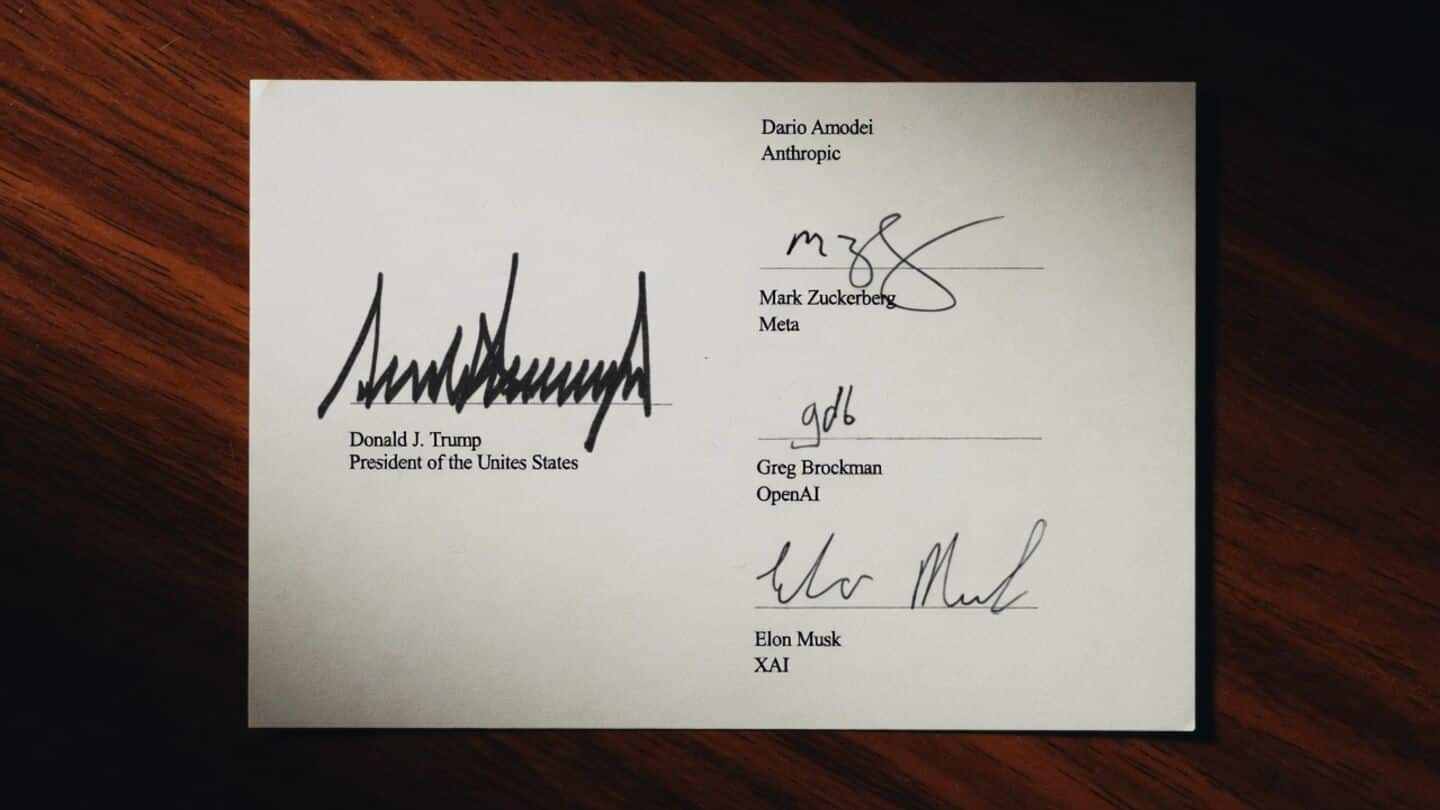 Donald J. Trump
President of the Unites States
Dario Amodei
Anthropic
Mark Zuckerberg
Meta
gdb
Greg Brockman
OpenAI
Elon Musk
Elon Musk
XAI